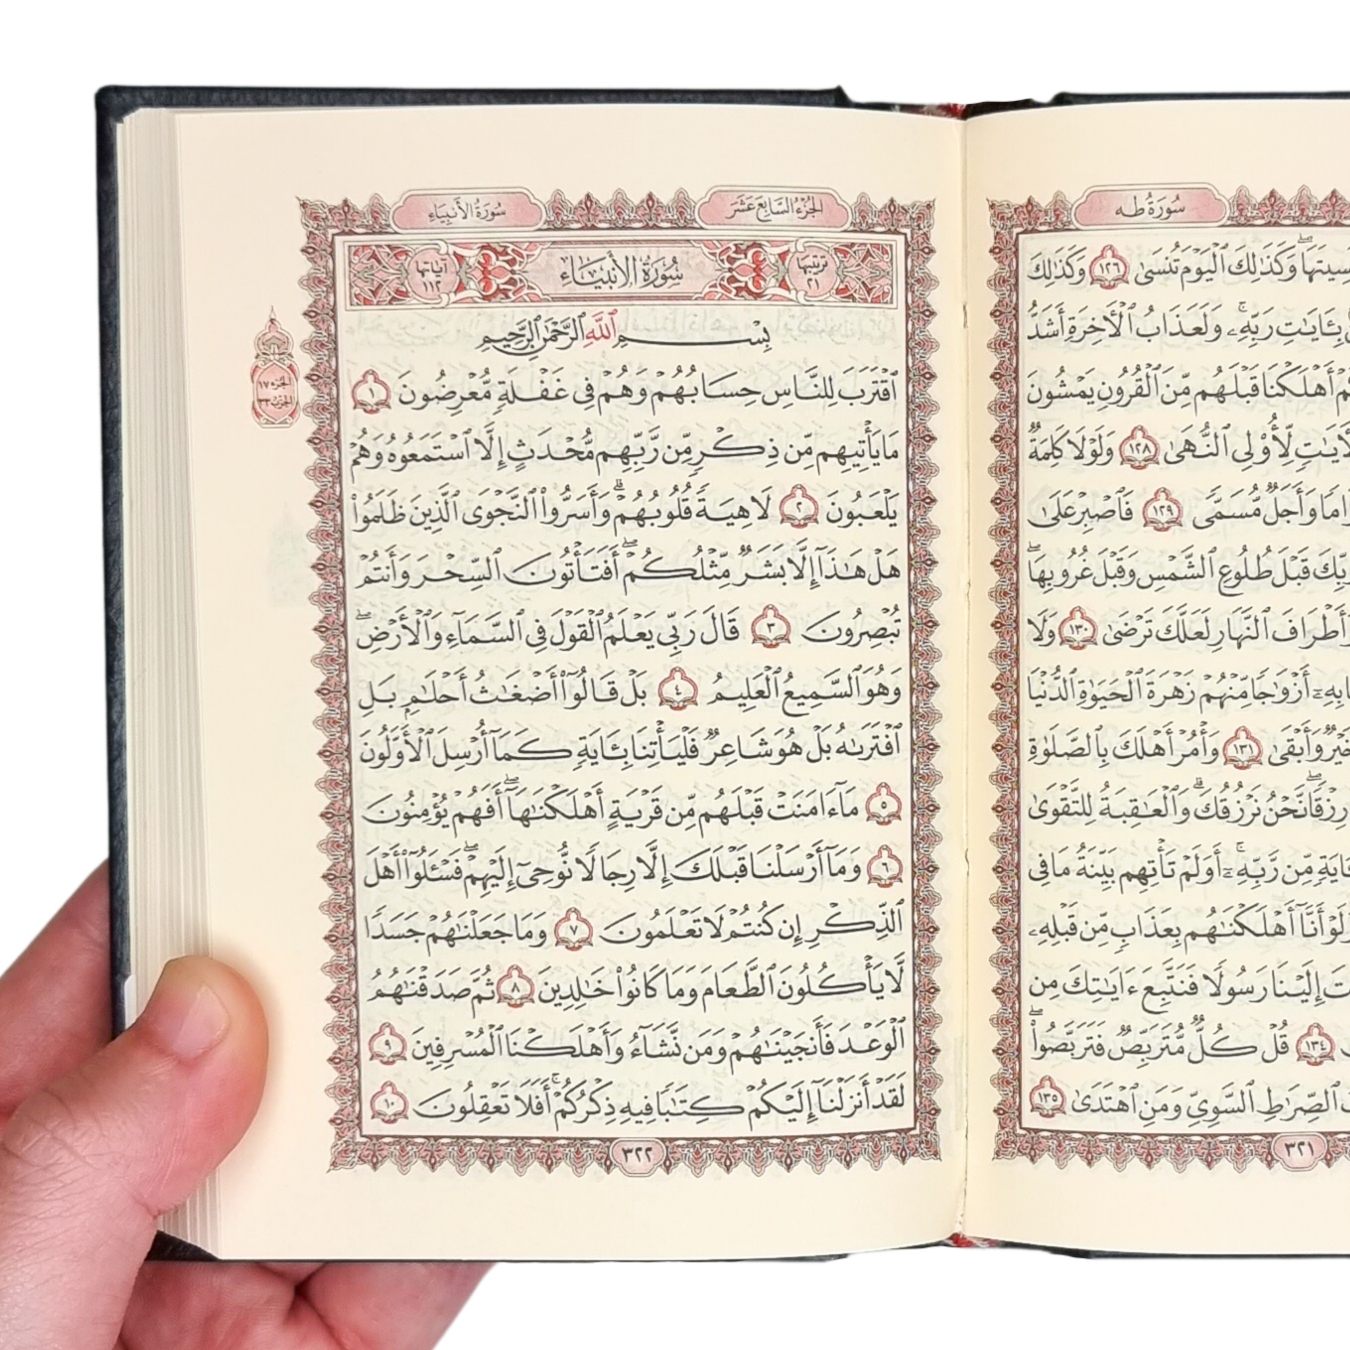 سُورَةُ طه
سِيتَهَا ۖ وَكَذَٰلِكَ ٱلْيَوْمَ تُنسَىٰ ١٢٦ وَكَذَٰلِكَ
بِـَٔايَٰتِ رَبِّهِۦ ۚ وَلَعَذَابُ ٱلْـَٔاخِرَةِ أَشَدُّ
مْ أَهْلَكْنَا قَبْلَهُم مِّنَ ٱلْقُرُونِ يَمْشُونَ
لَـَٔايَٰتٍ لِّأُو۟لِى ٱلنُّهَىٰ ١٢٨ وَلَوْلَا كَلِمَةٌ
امًا وَأَجَلٌ مُّسَمًّى ١٢٩ فَٱصْبِرْ عَلَىٰ
رَبِّكَ قَبْلَ طُلُوعِ ٱلشَّمْسِ وَقَبْلَ غُرُوبِهَا ۖ
وَأَطْرَافَ ٱلنَّهَارِ لَعَلَّكَ تَرْضَىٰ ١٣٠ وَلَا
ابِهِۦٓ أَزْوَٰجًا مِّنْهُمْ زَهْرَةَ ٱلْحَيَوٰةِ ٱلدُّنْيَا
خَيْرٌ وَأَبْقَىٰ ١٣١ وَأْمُرْ أَهْلَكَ بِٱلصَّلَوٰةِ
رِزْقًا ۖ نَّحْنُ نَرْزُقُكَ ۗ وَٱلْعَٰقِبَةُ لِلتَّقْوَىٰ
ـَٔايَةٍ مِّن رَّبِّهِۦٓ ۚ أَوَلَمْ تَأْتِهِم بَيِّنَةُ مَا فِى
وَلَوْ أَنَّآ أَهْلَكْنَٰهُم بِعَذَابٍ مِّن قَبْلِهِۦ
تَ إِلَيْنَا رَسُولًا فَنَتَّبِعَ ءَايَٰتِكَ مِن
١٣٤ قُلْ كُلٌّ مُّتَرَبِّصٌ فَتَرَبَّصُوا۟ ۖ
ٱلصِّرَٰطِ ٱلسَّوِىِّ وَمَنِ ٱهْتَدَىٰ ١٣٥
٣٢١
الجُزءُ السَّابِعَ عَشَرَ سُورَةُ الأَنبِيَاءِ
ترتيبها ٢١ سُورَةُ الأَنبِيَاءِ آياتها ١١٢
بِسْمِ ٱللَّهِ ٱلرَّحْمَٰنِ ٱلرَّحِيمِ
ٱقْتَرَبَ لِلنَّاسِ حِسَابُهُمْ وَهُمْ فِى غَفْلَةٍ مُّعْرِضُونَ ١
مَا يَأْتِيهِم مِّن ذِكْرٍ مِّن رَّبِّهِم مُّحْدَثٍ إِلَّا ٱسْتَمَعُوهُ وَهُمْ
يَلْعَبُونَ ٢ لَاهِيَةً قُلُوبُهُمْ ۗ وَأَسَرُّوا۟ ٱلنَّجْوَى ٱلَّذِينَ ظَلَمُوا۟
هَلْ هَٰذَآ إِلَّا بَشَرٌ مِّثْلُكُمْ ۖ أَفَتَأْتُونَ ٱلسِّحْرَ وَأَنتُمْ
تُبْصِرُونَ ٣ قَالَ رَبِّى يَعْلَمُ ٱلْقَوْلَ فِى ٱلسَّمَآءِ وَٱلْأَرْضِ ۖ
وَهُوَ ٱلسَّمِيعُ ٱلْعَلِيمُ ٤ بَلْ قَالُوٓا۟ أَضْغَٰثُ أَحْلَٰمٍۭ بَلِ
ٱفْتَرَىٰهُ بَلْ هُوَ شَاعِرٌ فَلْيَأْتِنَا بِـَٔايَةٍ كَمَآ أُرْسِلَ ٱلْأَوَّلُونَ
٥ مَآ ءَامَنَتْ قَبْلَهُم مِّن قَرْيَةٍ أَهْلَكْنَٰهَآ ۖ أَفَهُمْ يُؤْمِنُونَ
٦ وَمَآ أَرْسَلْنَا قَبْلَكَ إِلَّا رِجَالًا نُّوحِىٓ إِلَيْهِمْ ۖ فَسْـَٔلُوٓا۟ أَهْلَ
ٱلذِّكْرِ إِن كُنتُمْ لَا تَعْلَمُونَ ٧ وَمَا جَعَلْنَٰهُمْ جَسَدًا
لَّا يَأْكُلُونَ ٱلطَّعَامَ وَمَا كَانُوا۟ خَٰلِدِينَ ٨ ثُمَّ صَدَقْنَٰهُمُ
ٱلْوَعْدَ فَأَنجَيْنَٰهُمْ وَمَن نَّشَآءُ وَأَهْلَكْنَا ٱلْمُسْرِفِينَ ٩
لَقَدْ أَنزَلْنَآ إِلَيْكُمْ كِتَٰبًا فِيهِ ذِكْرُكُمْ ۖ أَفَلَا تَعْقِلُونَ ١٠
٣٢٢
الجزء ١٧
الحزب ٣٣